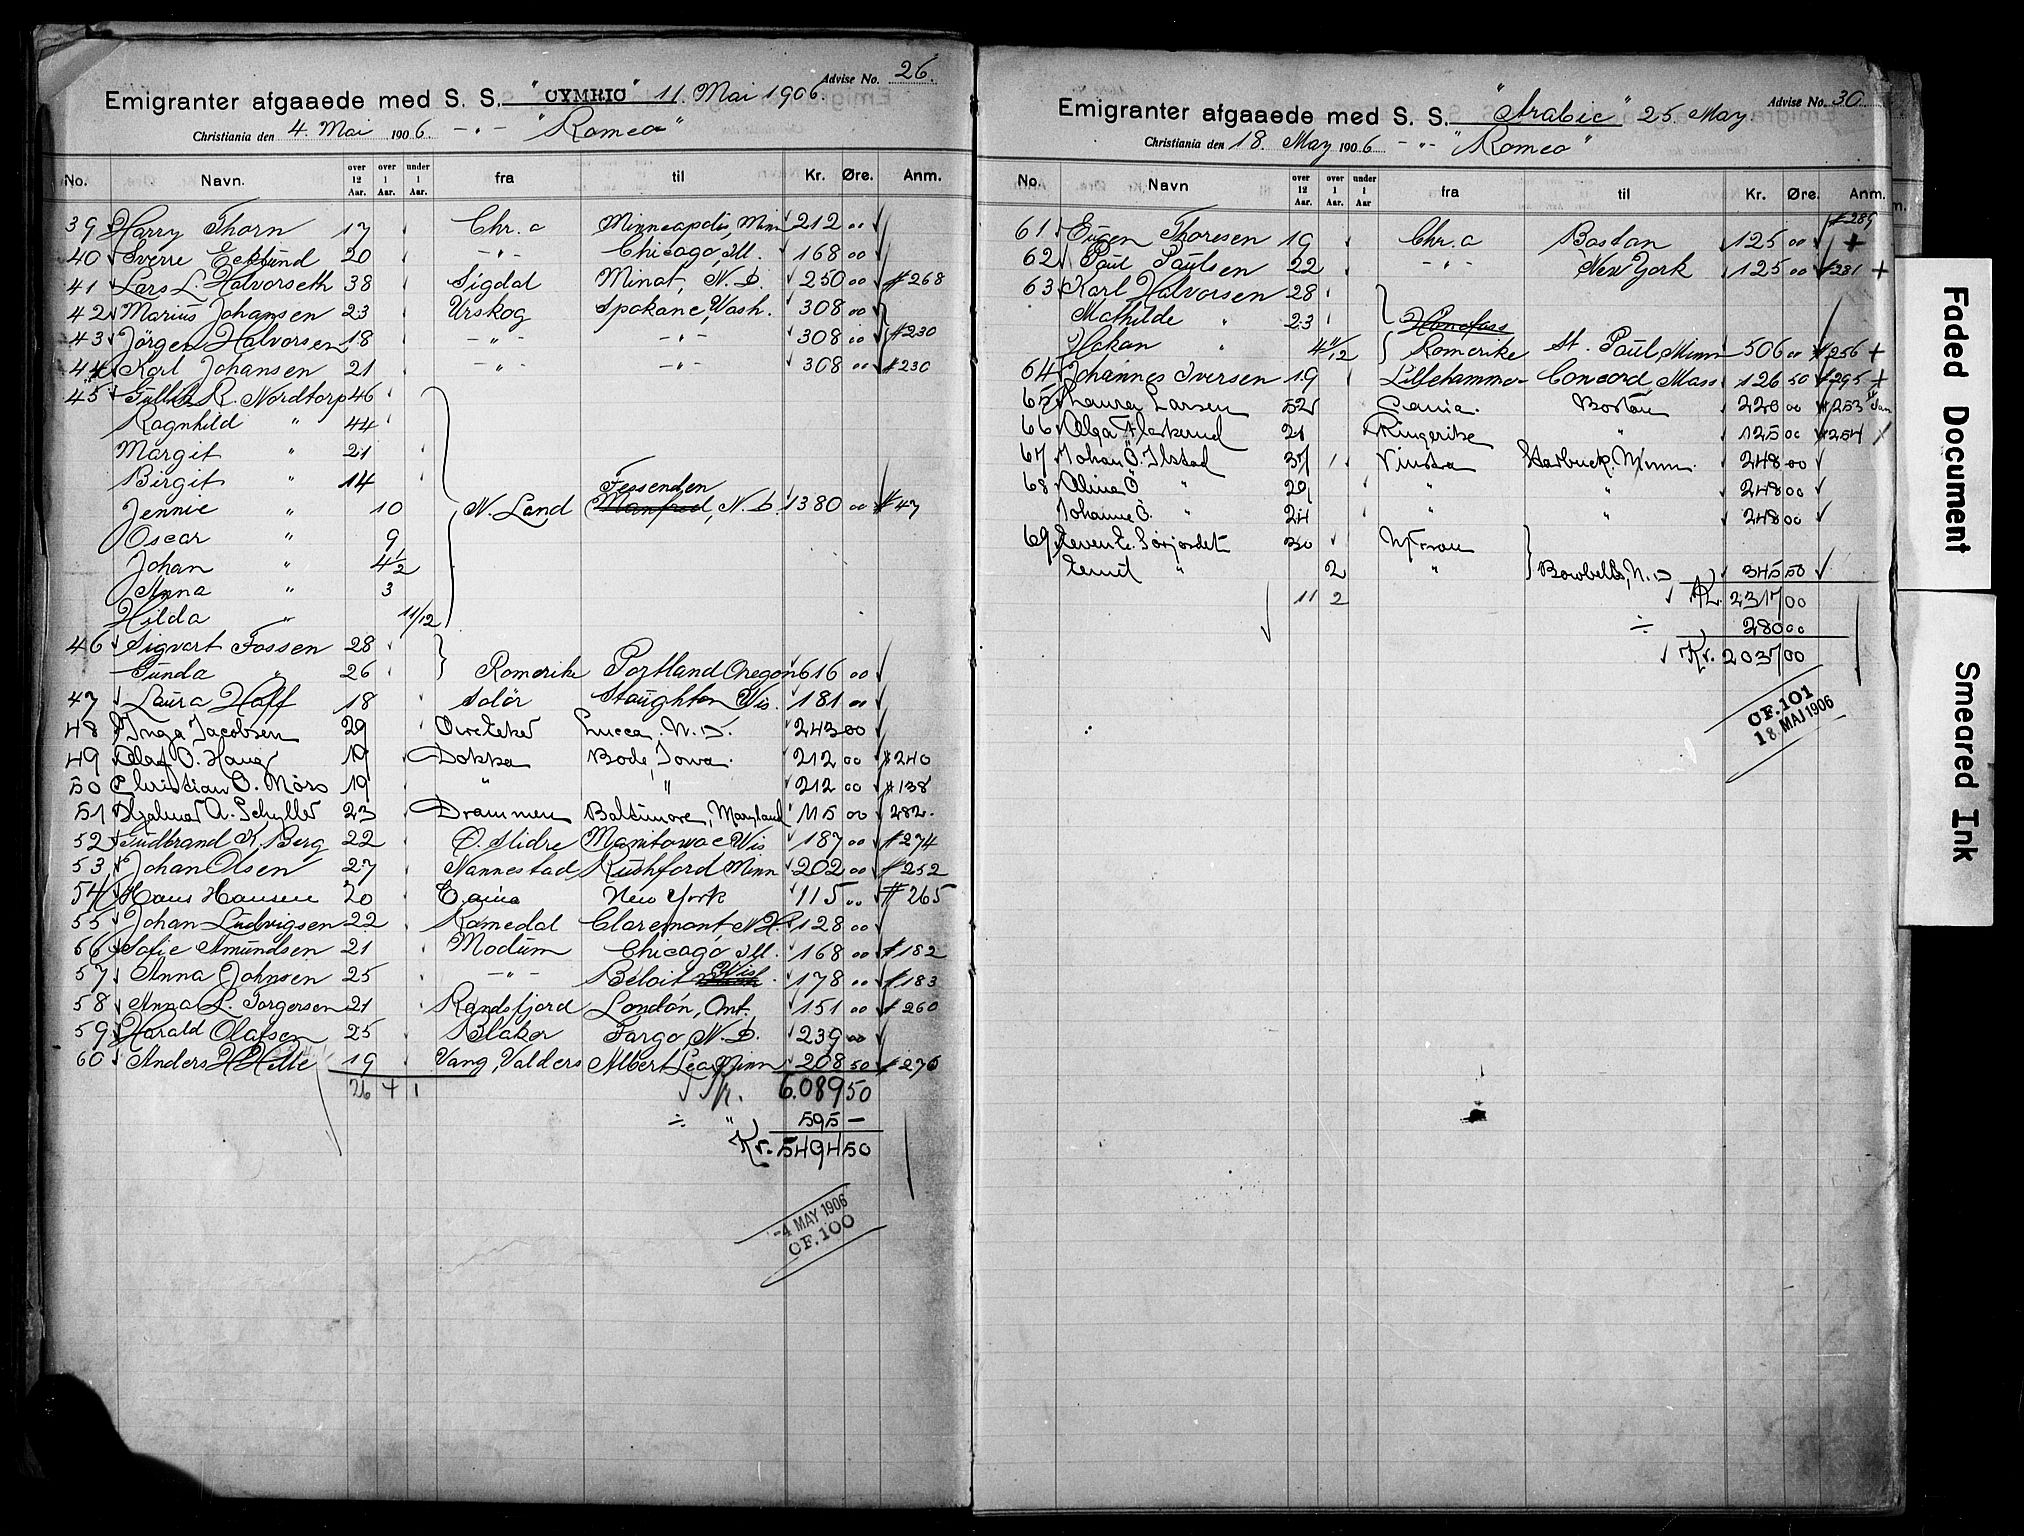 Advise No. 26.
Emigranter afgaaede med S. S. "CYMRIC" 11. Mai 1906.
Christiania den 4. Mai 1906. -"- "Romeo"
No. Navn. over 12 Aar. over 1 Aar. under 1 Aar. fra til Kr. Øre. Anm.
39 Harry Thorn 17 Chr.a Minneapolis, Minn 212 00
40 Sverre Ecklund 20 -"- Chicago, Ill. 168 00
41 Lars L. Halvorseth 38 Sigdal Minot, N. D. 250 00 #268
42 Marius Johansen 23 Urskog Spokane, Wash. 308 00
43 Jörgen Halvorsen 18 -"- -"- 308 00 #230
44 Karl Johansen 21 -"- -"- 308 00 #230
45 R. Nordtorp 46
Ragnhild " 44
Margit " 21
Birgit " 14
Fessenden
Jennie " 10 N. Land Manfred, N. D. 1380 00 #47
Oscar " 9
Johan " 4 1/2
Anna " 3
Hilda " 11/12
46 Sigvart Fossen 28
Gunda " 26 Romerike Portland Oregon 616 00
47 Laura Hoff 18 Solör Stoughton Wis. 181 00
48 Inga Jacobsen 29 Lucca, N. D. 243 00
49 Olaf O. Haug 19 Dokka Bode, Iowa. 212 00 #240
50 Christian O. Möro 19 " " 212 00 #138
51 Hjalmar A. Schyller 23 Drammen Baltimore, Maryland 115 00 282.
52 Gudbrand K. Berg 22 Ö. Slidre Manitowoc Wis 187 00 #274
53 Johan Olsen 27 Nannestad Rushford Minn 202 00 #252
54 Hans Hansen 20 New York 115 00 #265
55 Johan Ludvigsen 22 Romedal Claremont, N.H. 128 00
56 Sofie Amundsen 21 Modum Chicago Ill. 168 00 #182
57 Anna Johnsen 25 -"- Beloit Wis. 178 00 #183
58 Anna L. Torgersen 21 Randsfjord London, Ont. 151 00 #260
59 Harald Olafsen 25 Blaker Fargo, N. D. 239 00
60 Anders H Helle 19 Vang, Valders Albert Lea, Minn 208 50 #276
26 4 1 Kr. 6.089 50
÷ " 595 —
Kr. 5494 50
-4 MAY 1906
CF. 100
Advise No. 30
Emigranter afgaaede med S. S. "Arabic" 25. May
Christiania den 18. May 1906 -"- "Romeo"
No. Navn over 12 Aar. over 1 Aar. under 1 Aar fra til Kr. Øre. Anm.
#289
61 Eugen Thoresen 19 Chr.a Boston 125 00 +
62 Paul Paulsen 22 -"- New York 125 00 #281 +
63 Karl Halvorsen 28
Mathilde " 23 Hönefoss
Hakan " 4 11/12 Romerike St. Paul, Minn 506 00 #256 +
64 Johannes Iversen 19 Lillehammer Concord Mass 126 50 #295 +
65 Laura Larsen 52 Boston 220 00 #253
66 Olga 21 Ringerike " 125 00 #254
67 Johan Ö. Ilstad 37 Vinstra Starbuck, Minn. 248 00
68 Olina Ö " 29 " " 248 00
Johanne Ö. " 24 " " 248 00
69 Even E. Sörjordet 30
2 " Bowbells, N. D 345 50
11 2 Kr. 2317 00
÷ 280 00
Kr. 2037 00
CF. 101
18 MAI 1906
Faded Document
Smeared Ink